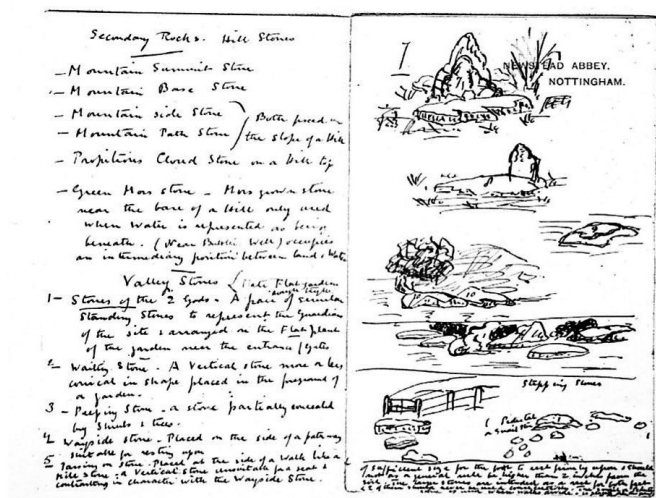 Secondary Rocks. Hill Stones
— Mountain Summit Stone
— Mountain Base Stone
— Mountain side Stone
— Mountain Path Stone
Both placed on
the slope of a Hill
— Propitious Cloud Stone on a Hill top
— Green Moss stone — Moss grown stone
near the base of a Hill only used
when water is represented as being
beneath. (Near Buddhi Well) occupies
an intermediary position between land & Water
Valley Stones
Flat garden
1 — Stones of the 2 Gods. A pair of similar
Standing Stones to represent the Guardian
of the site & arranged on the Flat plane
of the garden near the entrance / Gates
2 — Waiting Stone. A Vertical stone more or less
conical in shape placed in the foreground of
a garden.
3 — Peeping Stone — a stone partially concealed
by Shrubs & trees.
4 Wayside stone. Placed on the side of a pathway
suitable for resting upon
5 Passing on Stone. Placed at the side of a Walk like a
Hill Stone a Vertical Stone unsuitable for a seat &
contrasting in character with the Wayside Stone.
7
NEWSTEAD ABBEY,
NOTTINGHAM.
Stepping Stones
Pedestal
of sufficient size for the foot to rest firmly upon & should